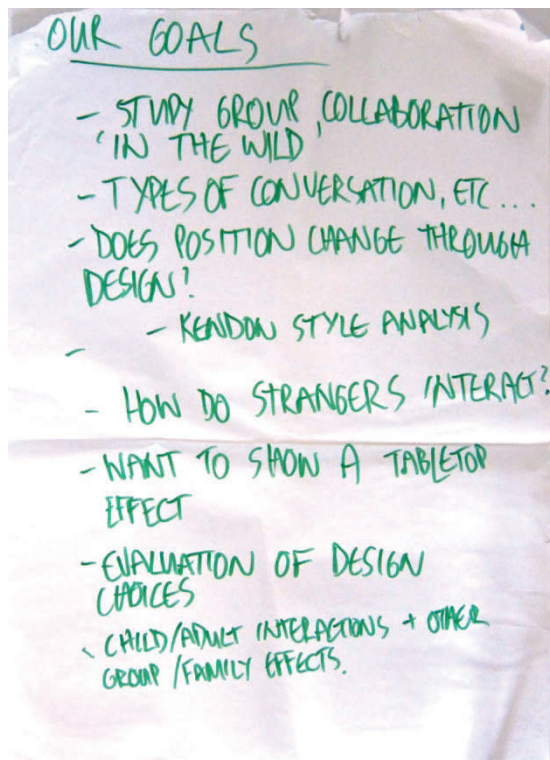 OUR GOALS
- STUDY GROUP COLLABORATION
'IN THE WILD'
- TYPES OF CONVERSATION, ETC...
- DOES POSITION CHANGE THROUGH
DESIGN?
- KENDON STYLE ANALYSIS
-
- HOW DO STRANGERS INTERACT?
- WANT TO SHOW A TABLETOP
EFFECT
- EVALUATION OF DESIGN
CHOICES
- CHILD/ADULT INTERACTIONS + OTHER
GROUP/FAMILY EFFECTS.